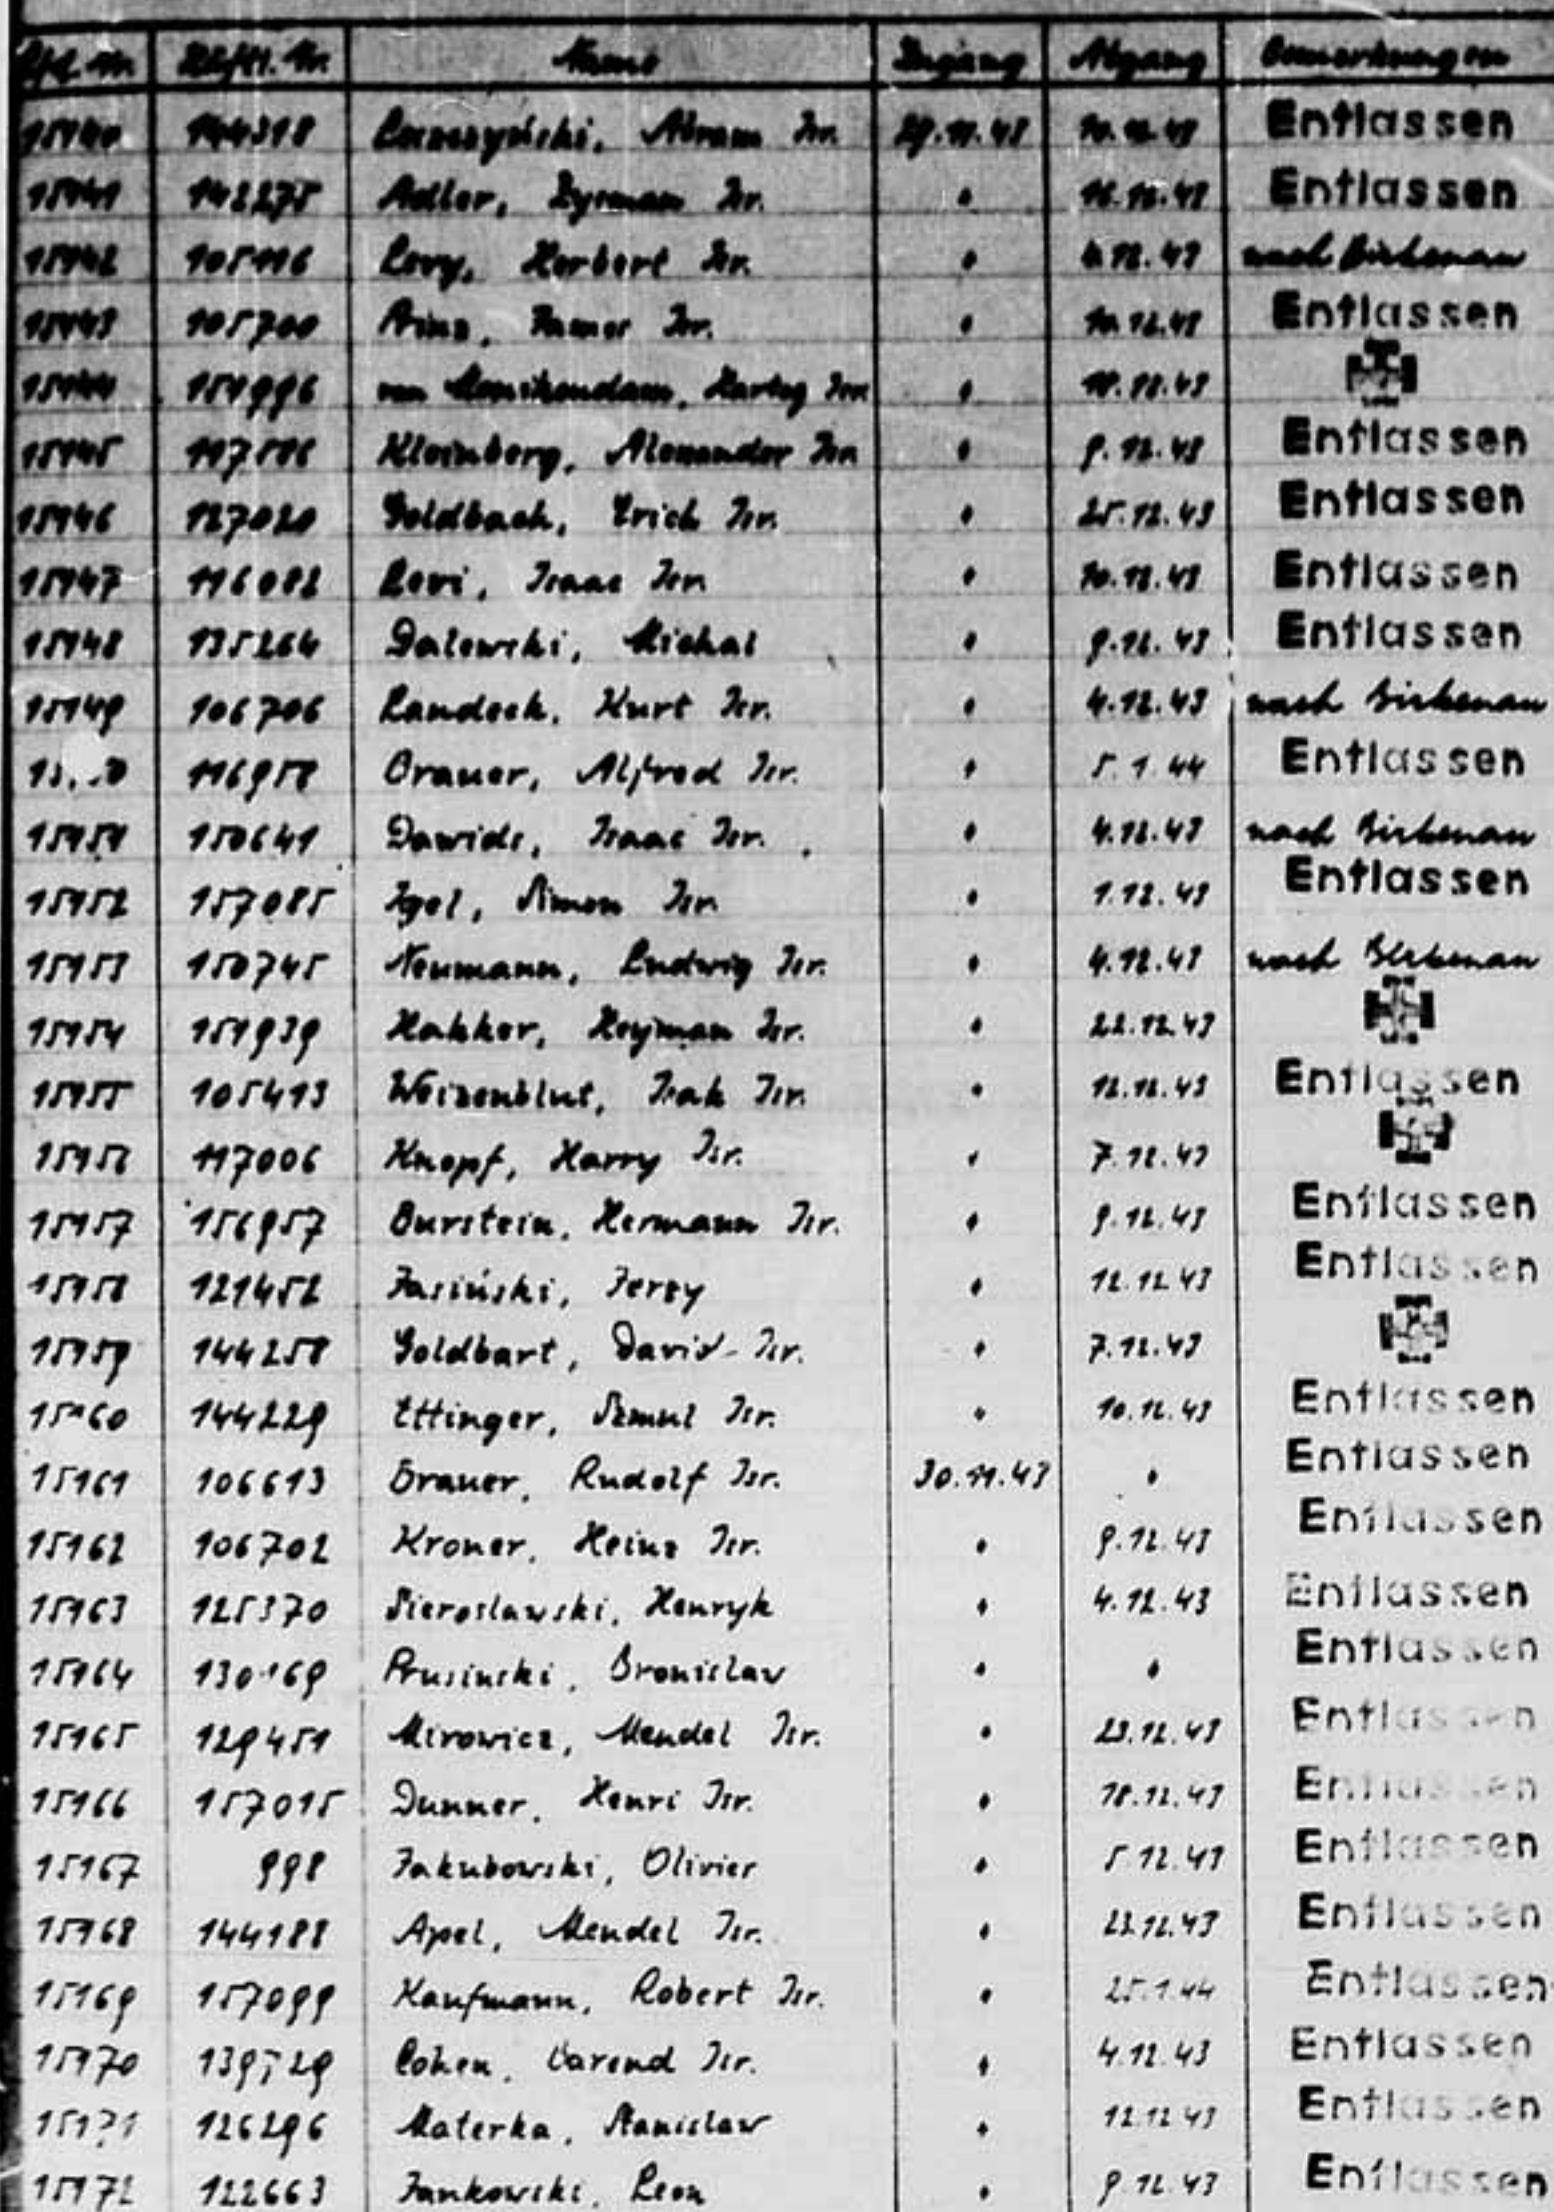 Lfd. Nr. Häftl. Nr. Name Zugang Abgang Bemerkungen
15140 144318 Abram Isr. 29.11.43 10.12.43 Entlassen
15141 142275 Adler, Szyman Isr. " 16.12.43 Entlassen
15142 105116 Levy, Herbert Isr. " 4.12.43 nach Birkenau
15143 105700 Isr. " 10.12.43 Entlassen
15144 151996 van Monikendam, Hartog Isr. "
15145 117586 Kleinberg, Alexander Isr. " 9.12.43 Entlassen
15146 127020 Goldbach, Erich Isr. " 25.12.43 Entlassen
15147 116082 Levi, Isaac Isr. " 10.12.43 Entlassen
15148 135264 Galewski, Michal " 9.12.43 Entlassen
15149 106706 Landeck, Kurt Isr. " 4.12.43 nach Birkenau
116958 Brauer, Alfred Isr. " 5.1.44 Entlassen
15151 150641 Davids, Isaac Isr. " 4.12.43 nach Birkenau
15152 157085 Igel, Simon Isr. " 1.12.43 Entlassen
15153 150745 Neumann, Ludwig Isr. " 4.12.43 nach Birkenau
15154 151939 Hakker, Heyman Isr. " 22.12.43
15155 105413 Weizenblut, Isak Isr. " 12.12.43 Entlassen
15156 117006 Knopf, Harry Isr. " 7.12.43
15157 156957 Burstein, Hermann Isr. " 9.12.43 Entlassen
15158 121452 Jasiński, Jerzy " 12.12.43 Entlassen
15159 144258 Goldbart, David Isr. " 7.12.43
15160 144229 Ettinger, Szmul Isr. " 10.12.43 Entlassen
15161 106613 Brauer, Rudolf Isr. 30.11.43 " Entlassen
15162 106702 Kroner, Heinz Isr. " 9.12.43 Entlassen
15163 125370 Sieroslawski, Henryk " 4.12.43 Entlassen
15164 130169 Prusinski, Bronislaw " " Entlassen
15165 129451 Mirowicz, Mendel Isr. " 23.12.43 Entlassen
15166 157015 Dunner, Henri Isr. " 18.12.43 Entlassen
15167 998 Jakubowski, Olivier " 5.12.43 Entlassen
15168 144188 Apel, Mendel Isr. " 23.12.43 Entlassen
15169 157099 Kaufmann, Robert Isr. " 25.1.44 Entlassen
15170 Cohen, Barend Isr. " 4.12.43 Entlassen
15171 126296 Materka, Stanislaw " 12.12.43 Entlassen
15172 122663 Jankowski, Leon " 9.12.43 Entlassen